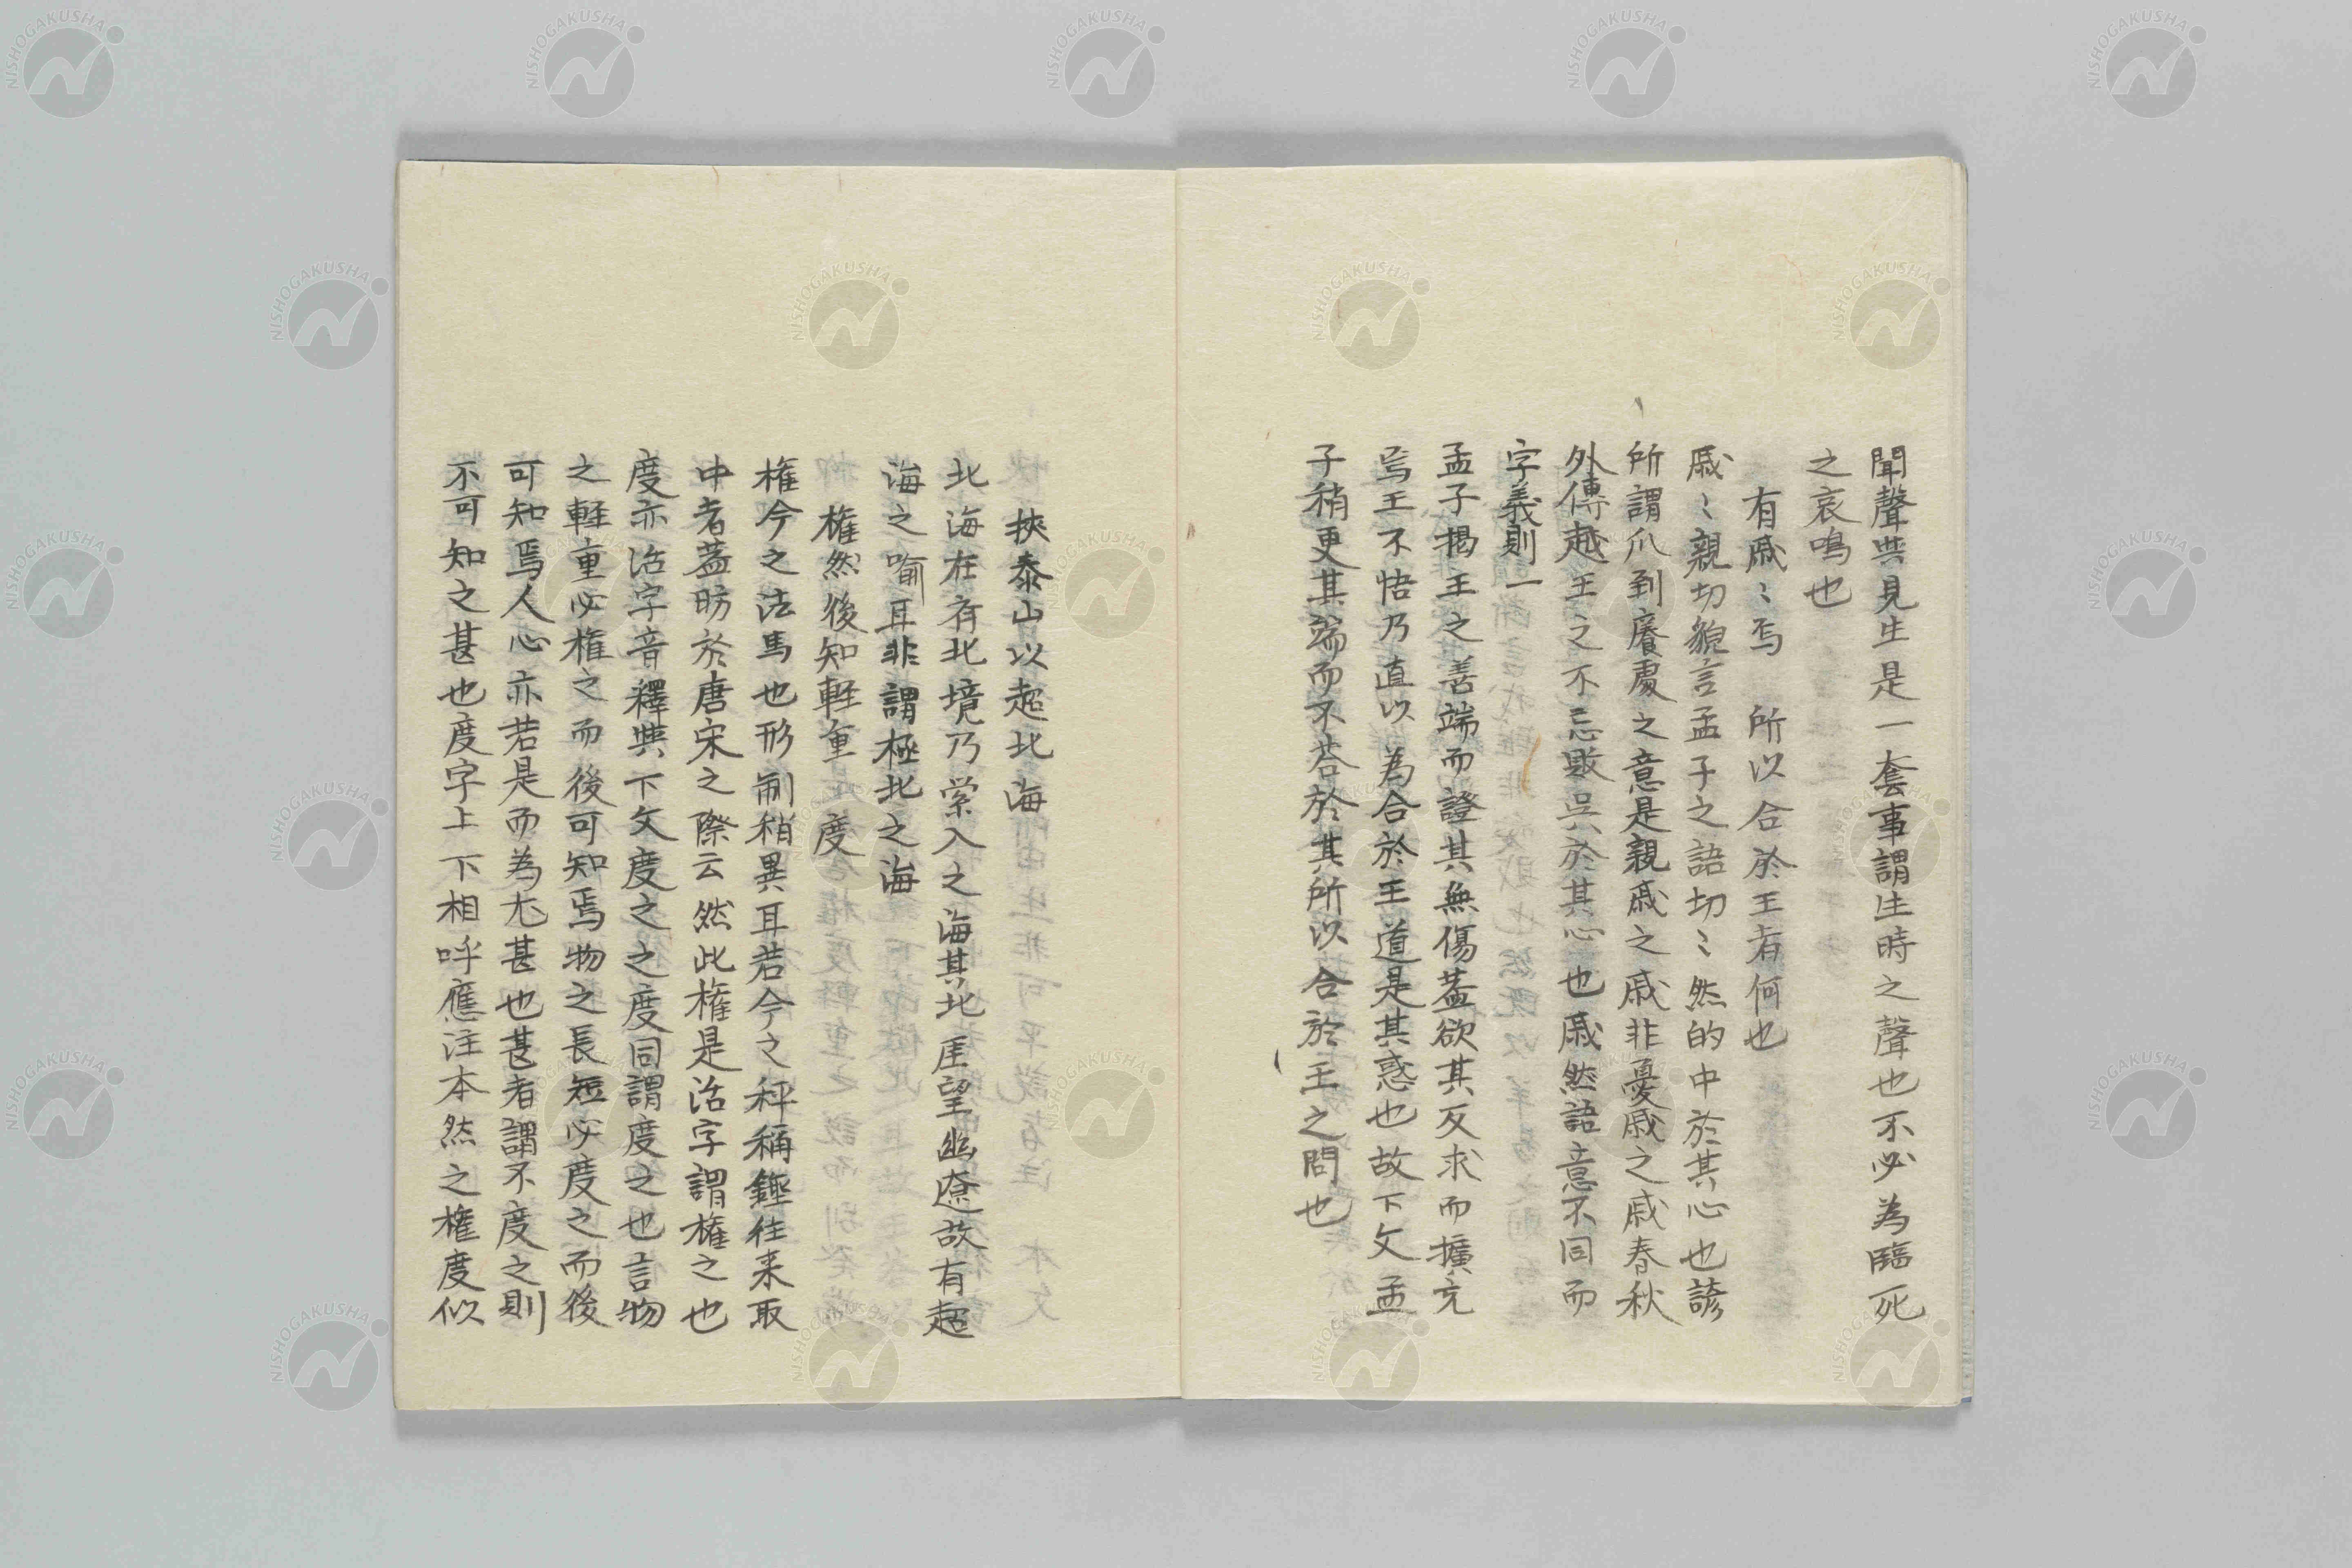 聞聲與見生是一套事謂生時之聲也不必為臨死
之哀鳴也
有戚〻焉　所以合於王者何也
戚〻親切貌言孟子之語切〻然的中於其心也諺
所謂爪到癢處之意是親戚之戚非憂戚之戚春秋
外傳越王之不忘敗吳於其心也戚然語意不同而
字義則一
孟子揭王之善端而證其無傷蓋欲其反求而擴充
焉王不悟乃直以為合於王道是其惑也故下文孟
子稍更其端而不荅於其所以合於王之問也
挾泰山以超北海
北海在齊北境乃滎入之海其北厓望幽遼故有超
海之喻耳非謂極北之海
權然後知軽重　度
権今之法馬也形制稍異耳若今之秤稱錘往来取
中者蓋昉於唐宋之際云然此権是活字謂権之也
度亦活字音釋與下文度之之度同謂度之也言物
之軽重必権之而後可知焉物之長短必度之而後
可知焉人心亦若是而為尤甚也甚者謂不度之則
不可知之甚也度字上下相呼應注本然之権度似